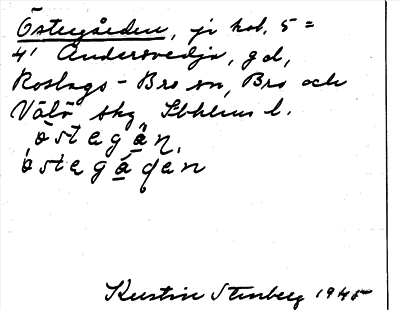 Östergården, ji kol. 5 =
4' Andersvedja, gd,
Roslags-Bro sn, Bro och
Vätö skg Sthlms l.
östegå̤n,
östegå̤den
Kerstin Stenberg 1945